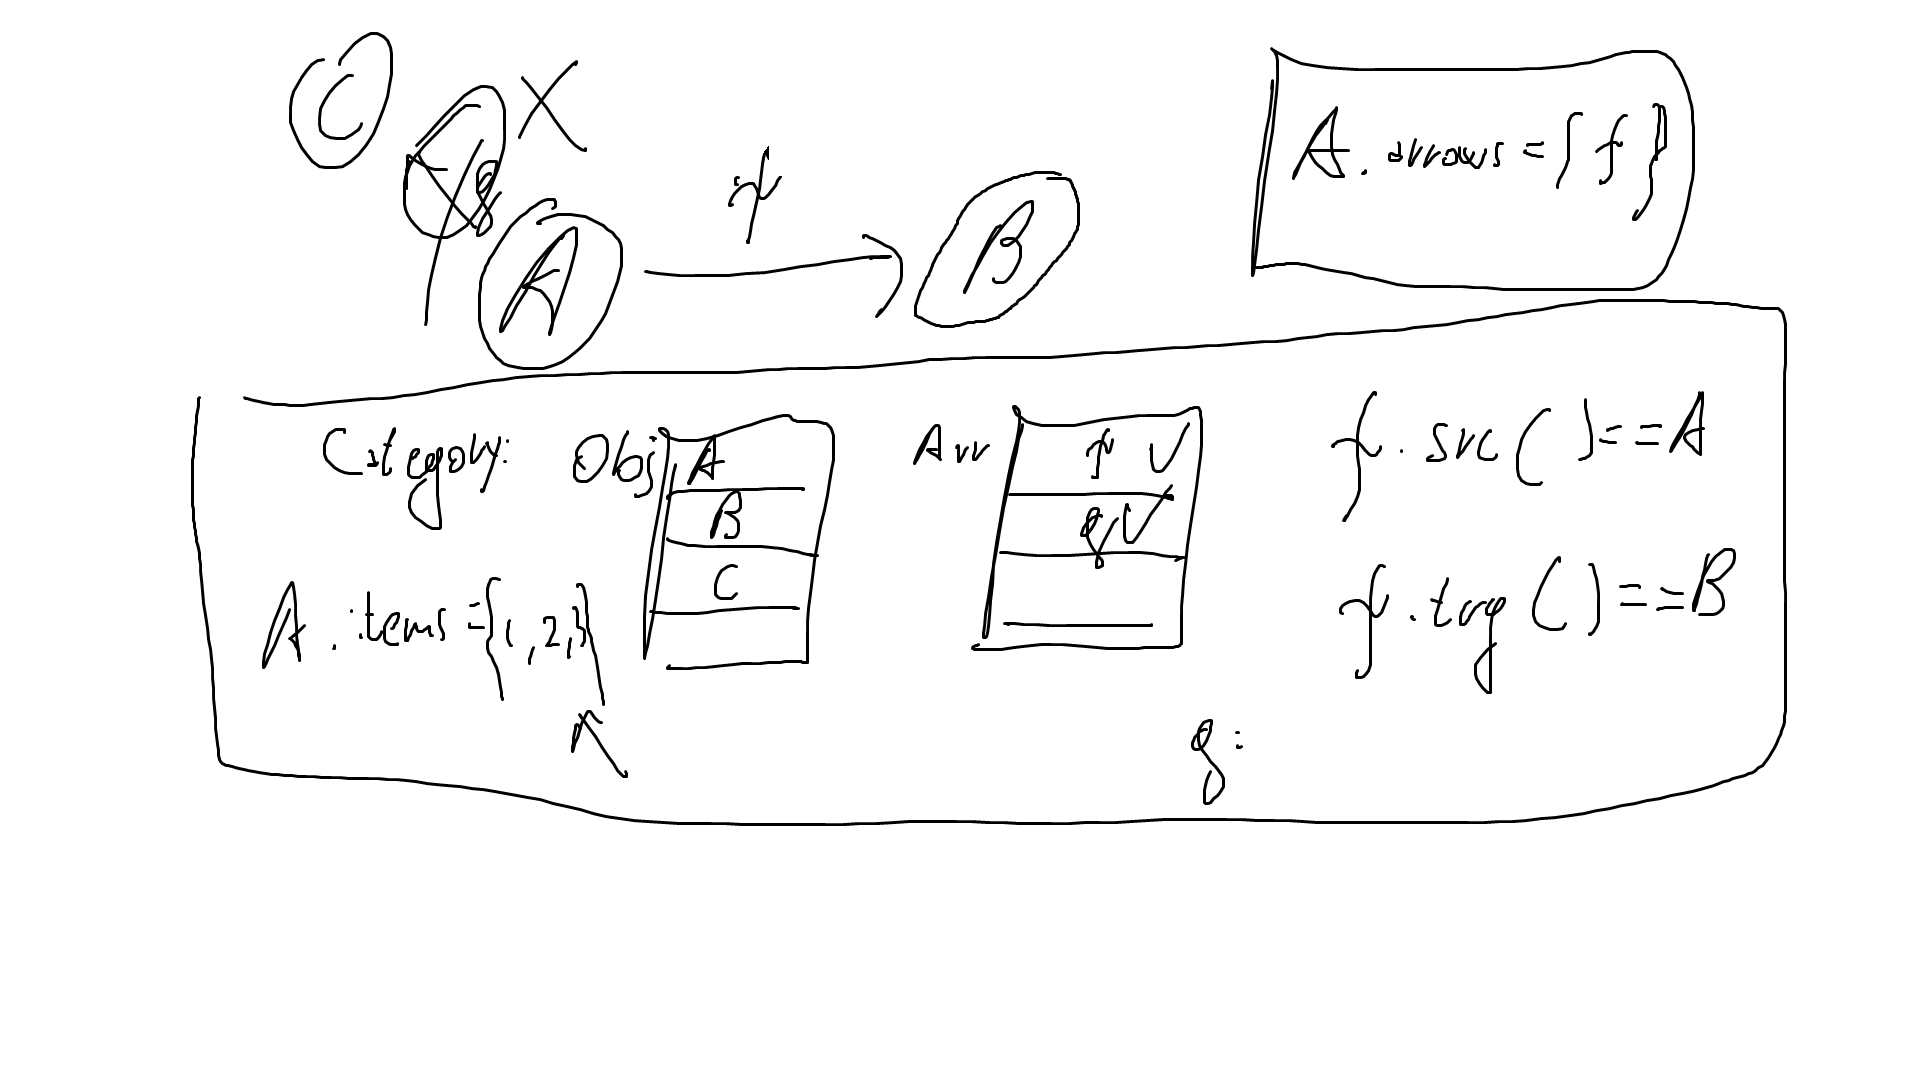 C
X
g
f
A
B
A.arrows = {f}
Category:
Obj
A
B
C
Arr
f ✓
g ✓
f.src() == A
A.items = {1, 2, 3}
f.trg() == B
g: